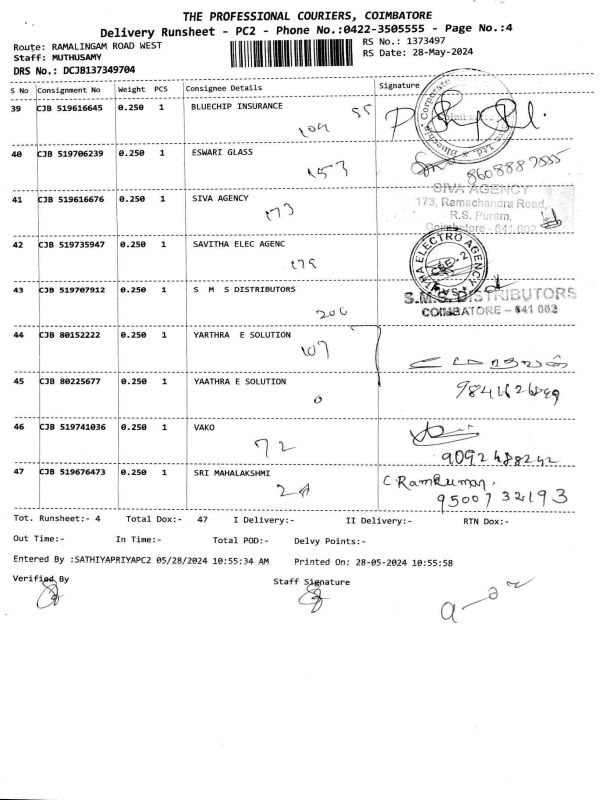 THE PROFESSIONAL COURIERS, COIMBATORE
Delivery Runsheet - PC2 - Phone No.:0422-3505555 - Page No.:4
Route: RAMALINGAM ROAD WEST
RS No.: 1373497
Staff: MUTHUSAMY
RS Date: 28-May-2024
DRS No.: DCJB137349704
S No Consignment No Weight PCS Consignee Details Signature
39 CJB 519616645 0.250 1 BLUECHIP INSURANCE
109
Corporate
Bluechip
40 CJB 519706239 0.250 1 ESWARI GLASS
153
8608887555
41 CJB 519616676 0.250 1 SIVA AGENCY
173
SIVA AGENCY
173, Ramachandra Road,
R.S. Puram,
Coimbatore - 641 002
42 CJB 519735947 0.250 1 SAVITHA ELEC AGENC
179
ELECTRO AGENCY
CBE-2
43 CJB 519707912 0.250 1 S M S DISTRIBUTORS
206
S.M.S. DISTRIBUTORS
COIMBATORE - 641 002
44 CJB 80152222 0.250 1 YARTHRA E SOLUTION
107
45 CJB 80225677 0.250 1 YAATHRA E SOLUTION
46 CJB 519741036 0.250 1 VAKO
72
9092488242
47 CJB 519676473 0.250 1 SRI MAHALAKSHMI
C. Ramkumar.
9500732193
Tot. Runsheet:- 4 Total Dox:- 47 I Delivery:- II Delivery:- RTN Dox:-
Out Time:- In Time:- Total POD:- Delvy Points:-
Entered By :SATHIYAPRIYAPC2 05/28/2024 10:55:34 AM Printed On: 28-05-2024 10:55:58
Verified By Staff Signature